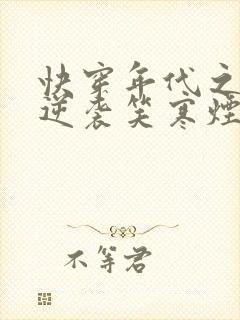 快穿年代之
逆袭笑寒烟
不等君